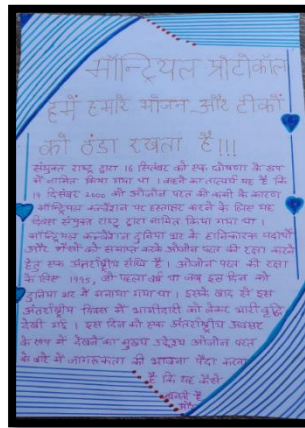 मॉन्ट्रियल प्रोटोकॉल
हमें हमारे भोजन और टीकों
को ठंडा रखता है!!!
संयुक्त राष्ट्र द्वारा 16 सितंबर को एक घोषणा के रूप
में नामित किया गया था । कहने का तात्पर्य यह है कि
19 दिसंबर 2000 को ओजोन परत की कमी के कारण
मॉन्ट्रियल कन्वेंशन पर हस्ताक्षर करने के लिए यह
दिवस संयुक्त राष्ट्र द्वारा नामित किया गया था ।
मॉन्ट्रियल कन्वेंशन दुनिया भर के हानिकारक पदार्थों
और गैसों को समाप्त करके ओजोन परत की रक्षा करने
हेतु एक अंतर्राष्ट्रीय संधि है । ओजोन परत की रक्षा
के लिए 1995, वो पहला वर्ष था जब इस दिन को
दुनिया भर में मनाया गया था । इसके बाद से इस
अंतर्राष्ट्रीय दिवस में भागीदारी को लेकर भारी वृद्धि
देखी गई । इस दिन को एक अंतर्राष्ट्रीय अवसर
के रूप में देखने का मुख्य उद्देश्य ओजोन परत
के बारे में जागरूकता की भावना पैदा करना
है कि यह कैसे
बनते है
और